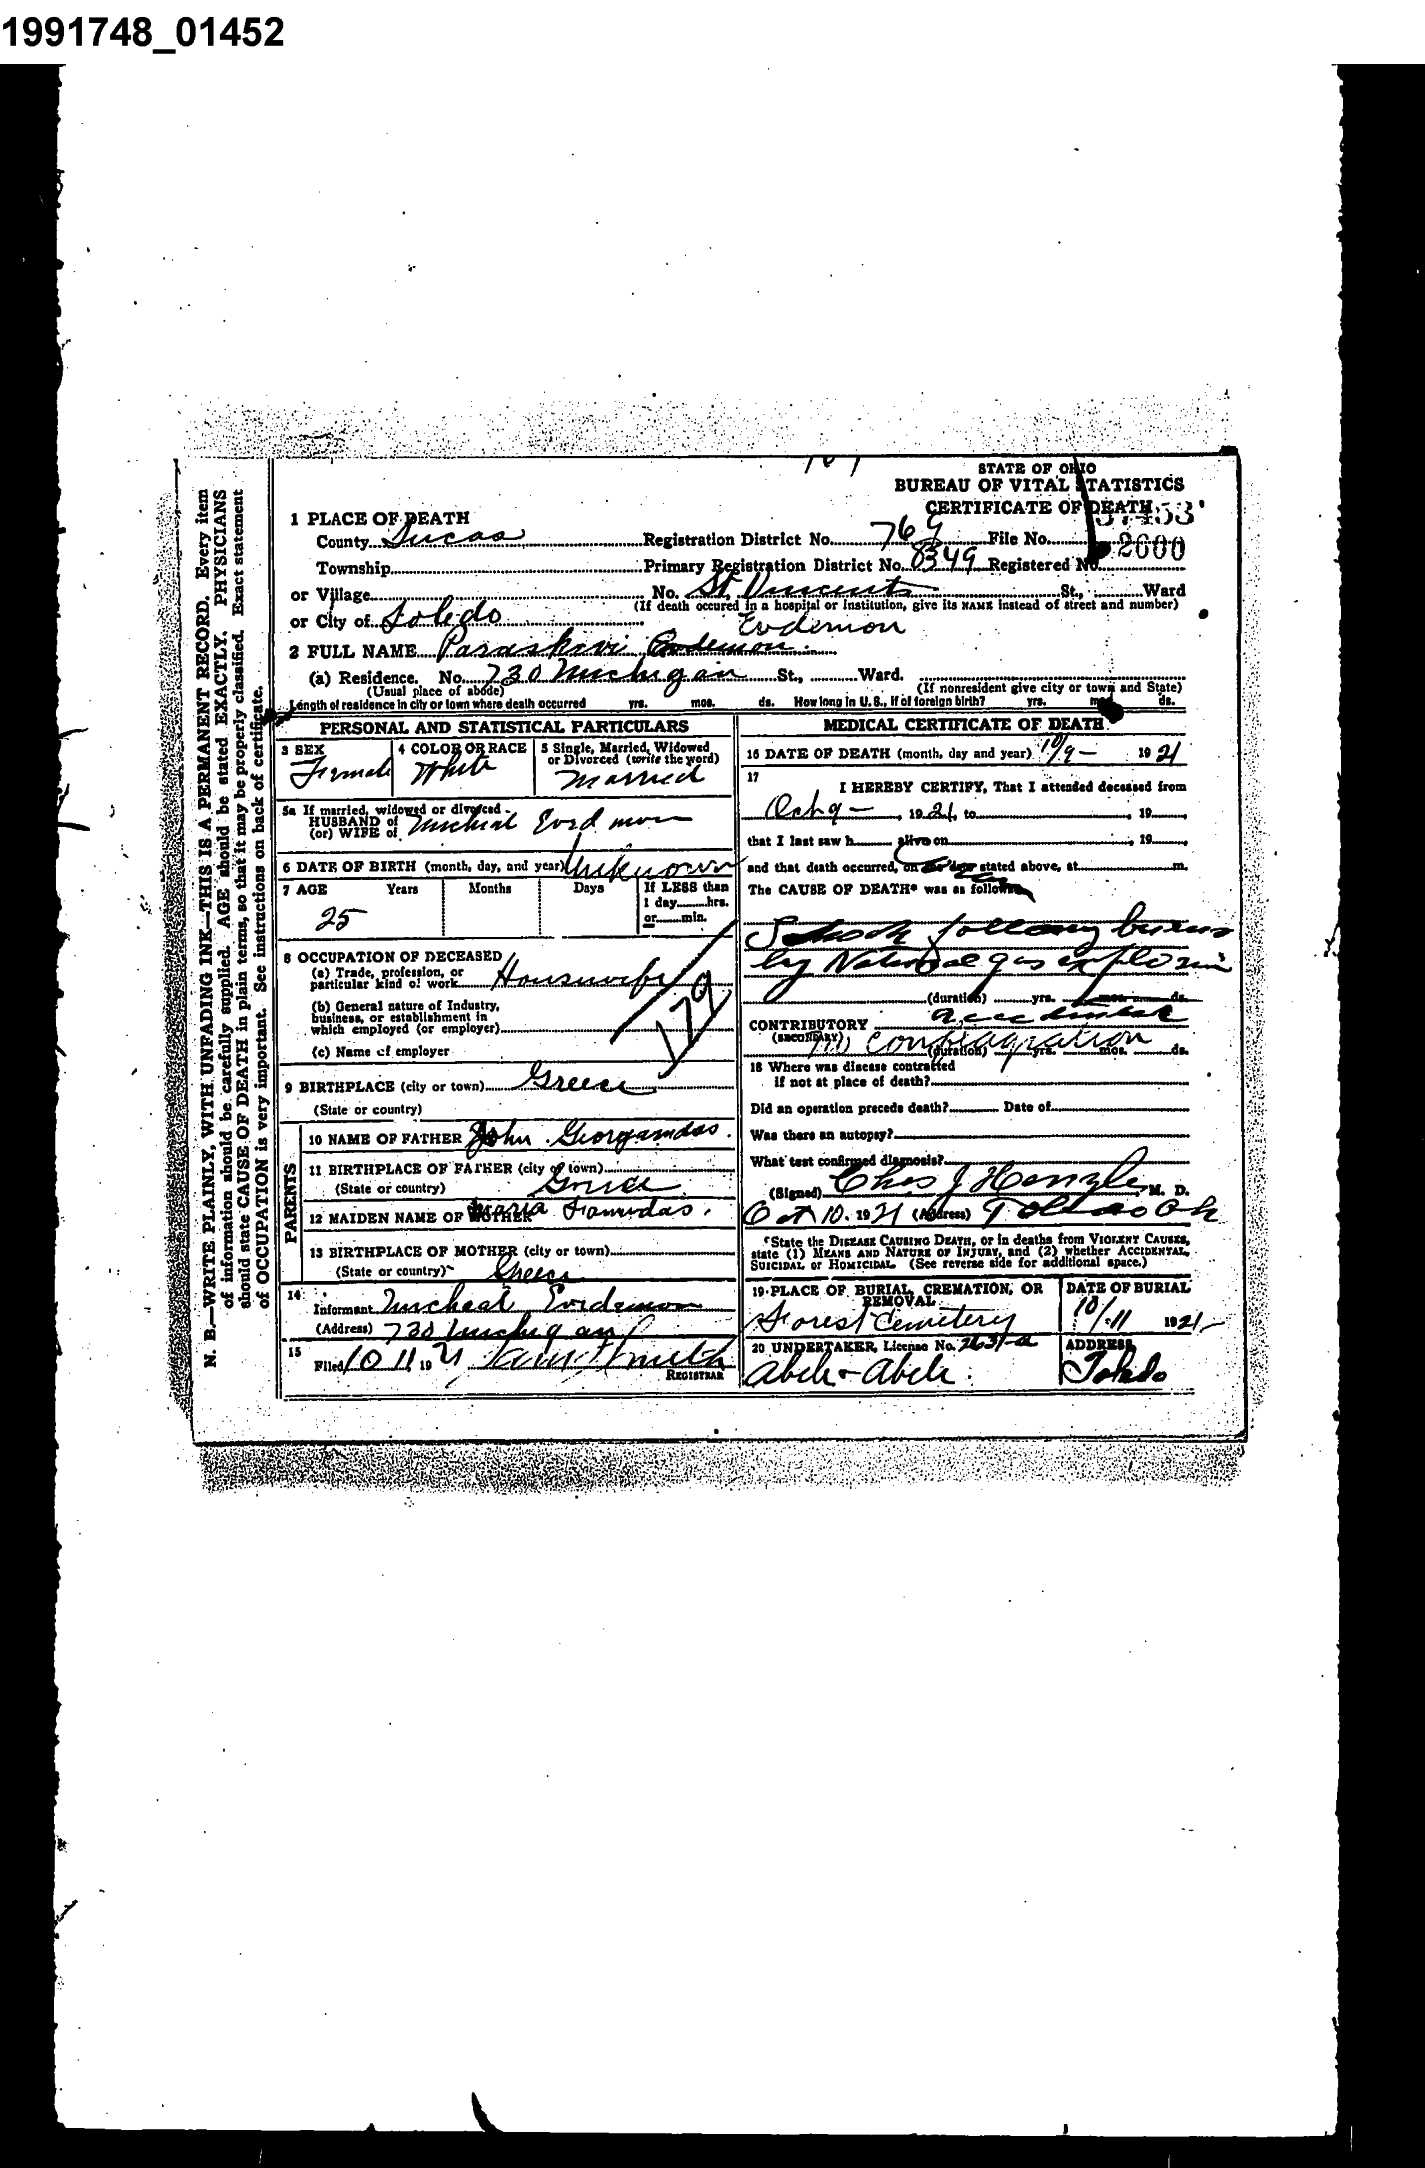 1991748_01452
STATE OF OHIO
BUREAU OF VITAL STATISTICS
CERTIFICATE OF DEATH
1 PLACE OF DEATH
County Lucas Registration District No. 769 File No.
Township Primary Registration District No. 8349 Registered No. 2600
or Village No. St. Vincents St., Ward
(If death occured in a hospital or institution, give its NAME instead of street and number)
or City of Toledo
Evdemon
2 FULL NAME Paraskevi
(a) Residence. No. 730 Michigan St., Ward.
(Usual place of abode) (If nonresident give city or town and State)
Length of residence in city or town where death occurred yrs. mos. ds. How long in U. S., if of foreign birth? yrs. mos. ds.
PERSONAL AND STATISTICAL PARTICULARS
3 SEX
Female
4 COLOR OR RACE
White
5 Single, Married, Widowed
or Divorced (write the word)
Married
5a If married, widowed or divorced
HUSBAND of
(or) WIFE of Micheal Evdemon
6 DATE OF BIRTH (month, day, and year) Unknown
7 AGE Years Months Days If LESS than
1 day hrs.
or min.
25
8 OCCUPATION OF DECEASED
(a) Trade, profession, or
particular kind of work Housewife
(b) General nature of Industry,
business, or establishment in
which employed (or employer)
(c) Name of employer
179
9 BIRTHPLACE (city or town) Greece
(State or country)
PARENTS
10 NAME OF FATHER John
11 BIRTHPLACE OF FATHER (city or town)
(State or country) Greece
12 MAIDEN NAME OF MOTHER Maria
13 BIRTHPLACE OF MOTHER (city or town)
(State or country) Greece
14
Informant Micheal Evidemon
(Address) 730 Michigan
15
Filed 10 11, 1921
REGISTRAR
MEDICAL CERTIFICATE OF DEATH
16 DATE OF DEATH (month, day and year) 10/9 - 1921
17
I HEREBY CERTIFY, That I attended deceased from
Oct 9 -, 1921, to , 19
that I last saw h alive on , 19
and that death occurred, on the date stated above, at m.
The CAUSE OF DEATH* was as follows:
Shock following burns
by Natural gas explosion
(duration) yrs. mos. ds.
accidental
CONTRIBUTORY
(SECONDARY) conflagration
(duration) yrs. mos. ds.
18 Where was disease contracted
if not at place of death?
Did an operation precede death? Date of
Was there an autopsy?
What test confirmed diagnosis?
(Signed) Chas J Henzler, M. D.
Oct 10, 1921 (Address) Toledo Oh
*State the DISEASE CAUSING DEATH, or in deaths from VIOLENT CAUSES,
state (1) MEANS AND NATURE OF INJURY, and (2) whether ACCIDENTAL,
SUICIDAL or HOMICIDAL. (See reverse side for additional space.)
19 PLACE OF BURIAL, CREMATION, OR
REMOVAL
Forest Cemetery
DATE OF BURIAL
10/11 1921
20 UNDERTAKER, License No. 2631-a
Abele & Abele
ADDRESS
Toledo
N. B.—WRITE PLAINLY, WITH UNFADING INK—THIS IS A PERMANENT RECORD. Every item
of information should be carefully supplied. AGE should be stated EXACTLY. PHYSICIANS
should state CAUSE OF DEATH in plain terms, so that it may be properly classified. Exact statement
of OCCUPATION is very important. See instructions on back of certificate.